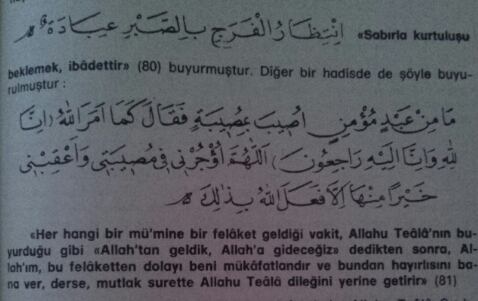 اِنْتِظَارُ الْفَرَجِ بِالصَّبْرِ عِبَادَةٌ «Sabırla kurtuluşu
beklemek, ibâdettir» (80) buyurmuştur. Diğer bir hadisde de şöyle buyu-
rulmuştur :
مَا مِنْ عَبْدٍ مُؤْمِنٍ اُصِيبَ بِمُصِيبَةٍ فَقَالَ كَمَا اَمَرَ اللهُ (اِنَّا
لِلّٰهِ وَاِنَّا اِلَيْهِ رَاجِعُونَ) اَللّٰهُمَّ اَوْجُرْنِى فِى مُصِيبَتِى وَاَعْقِبْنِى
خَيْرًا مِنْهَا اِلَّا فَعَلَ اللهُ بِذٰلِكَ
«Her hangi bir mü'mine bir felâket geldiği vakit, Allahu Teâlâ'nın bu-
yurduğu gibi «Allah'tan geldik, Allah'a gideceğiz» dedikten sonra, Al-
lah'ım, bu felâketten dolayı beni mükâfatlandır ve bundan hayırlısını ba-
na ver, derse, mutlak surette Allahu Teâlâ dileğini yerine getirir» (81)